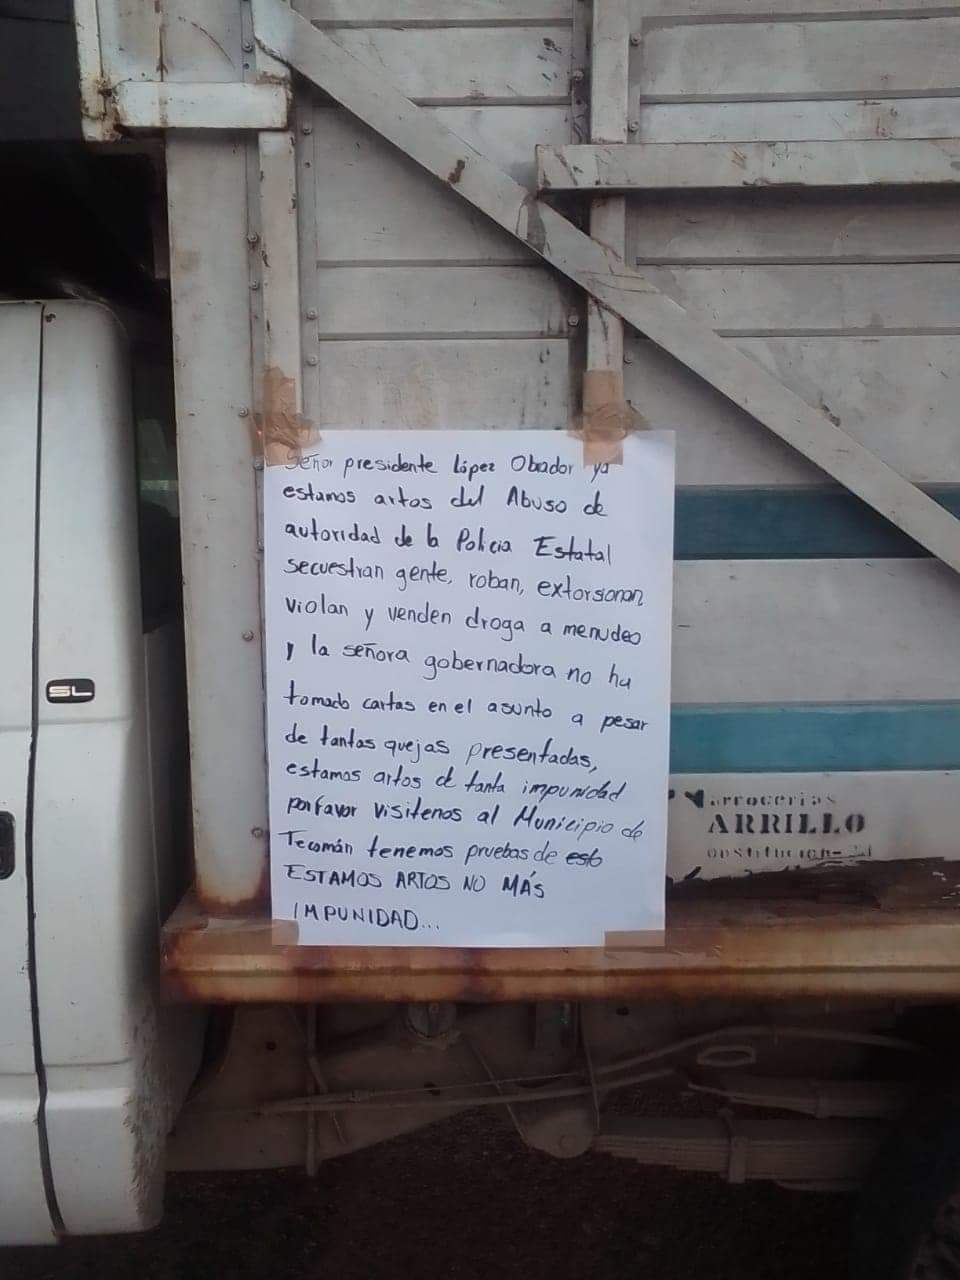 Señor presidente López Obrador ya
estamos artos del Abuso de
autoridad de la Policia Estatal
secuestran gente, roban, extorsionan,
violan y venden droga a menudeo
y la señora gobernadora no ha
tomado cartas en el asunto a pesar
de tantas quejas presentadas,
estamos artos de tanta impunidad
por favor visitenos al Municipio de
Tecomán tenemos pruebas de esto
ESTAMOS ARTOS NO MÁS
IMPUNIDAD...
SL
arrocerias
ARRILLO